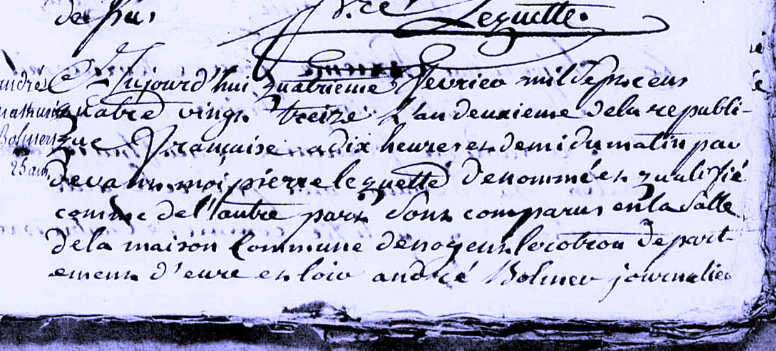 de sus
Leguette.
Aujourd'hui quatrieme fevrier mil sept cens
quatre vingt treize L'an deuxieme dela republi-
que française a dix heures en demi du matin par
devant moi pierre leguette denommé en qualifié
comme de l'autre part Sont comparus en la Salle
dela maison Commune denogent lerotrou depart-
ement d'eure en loir andré Bolmer journalier
andré
mathurin
Bolmer
25 ans